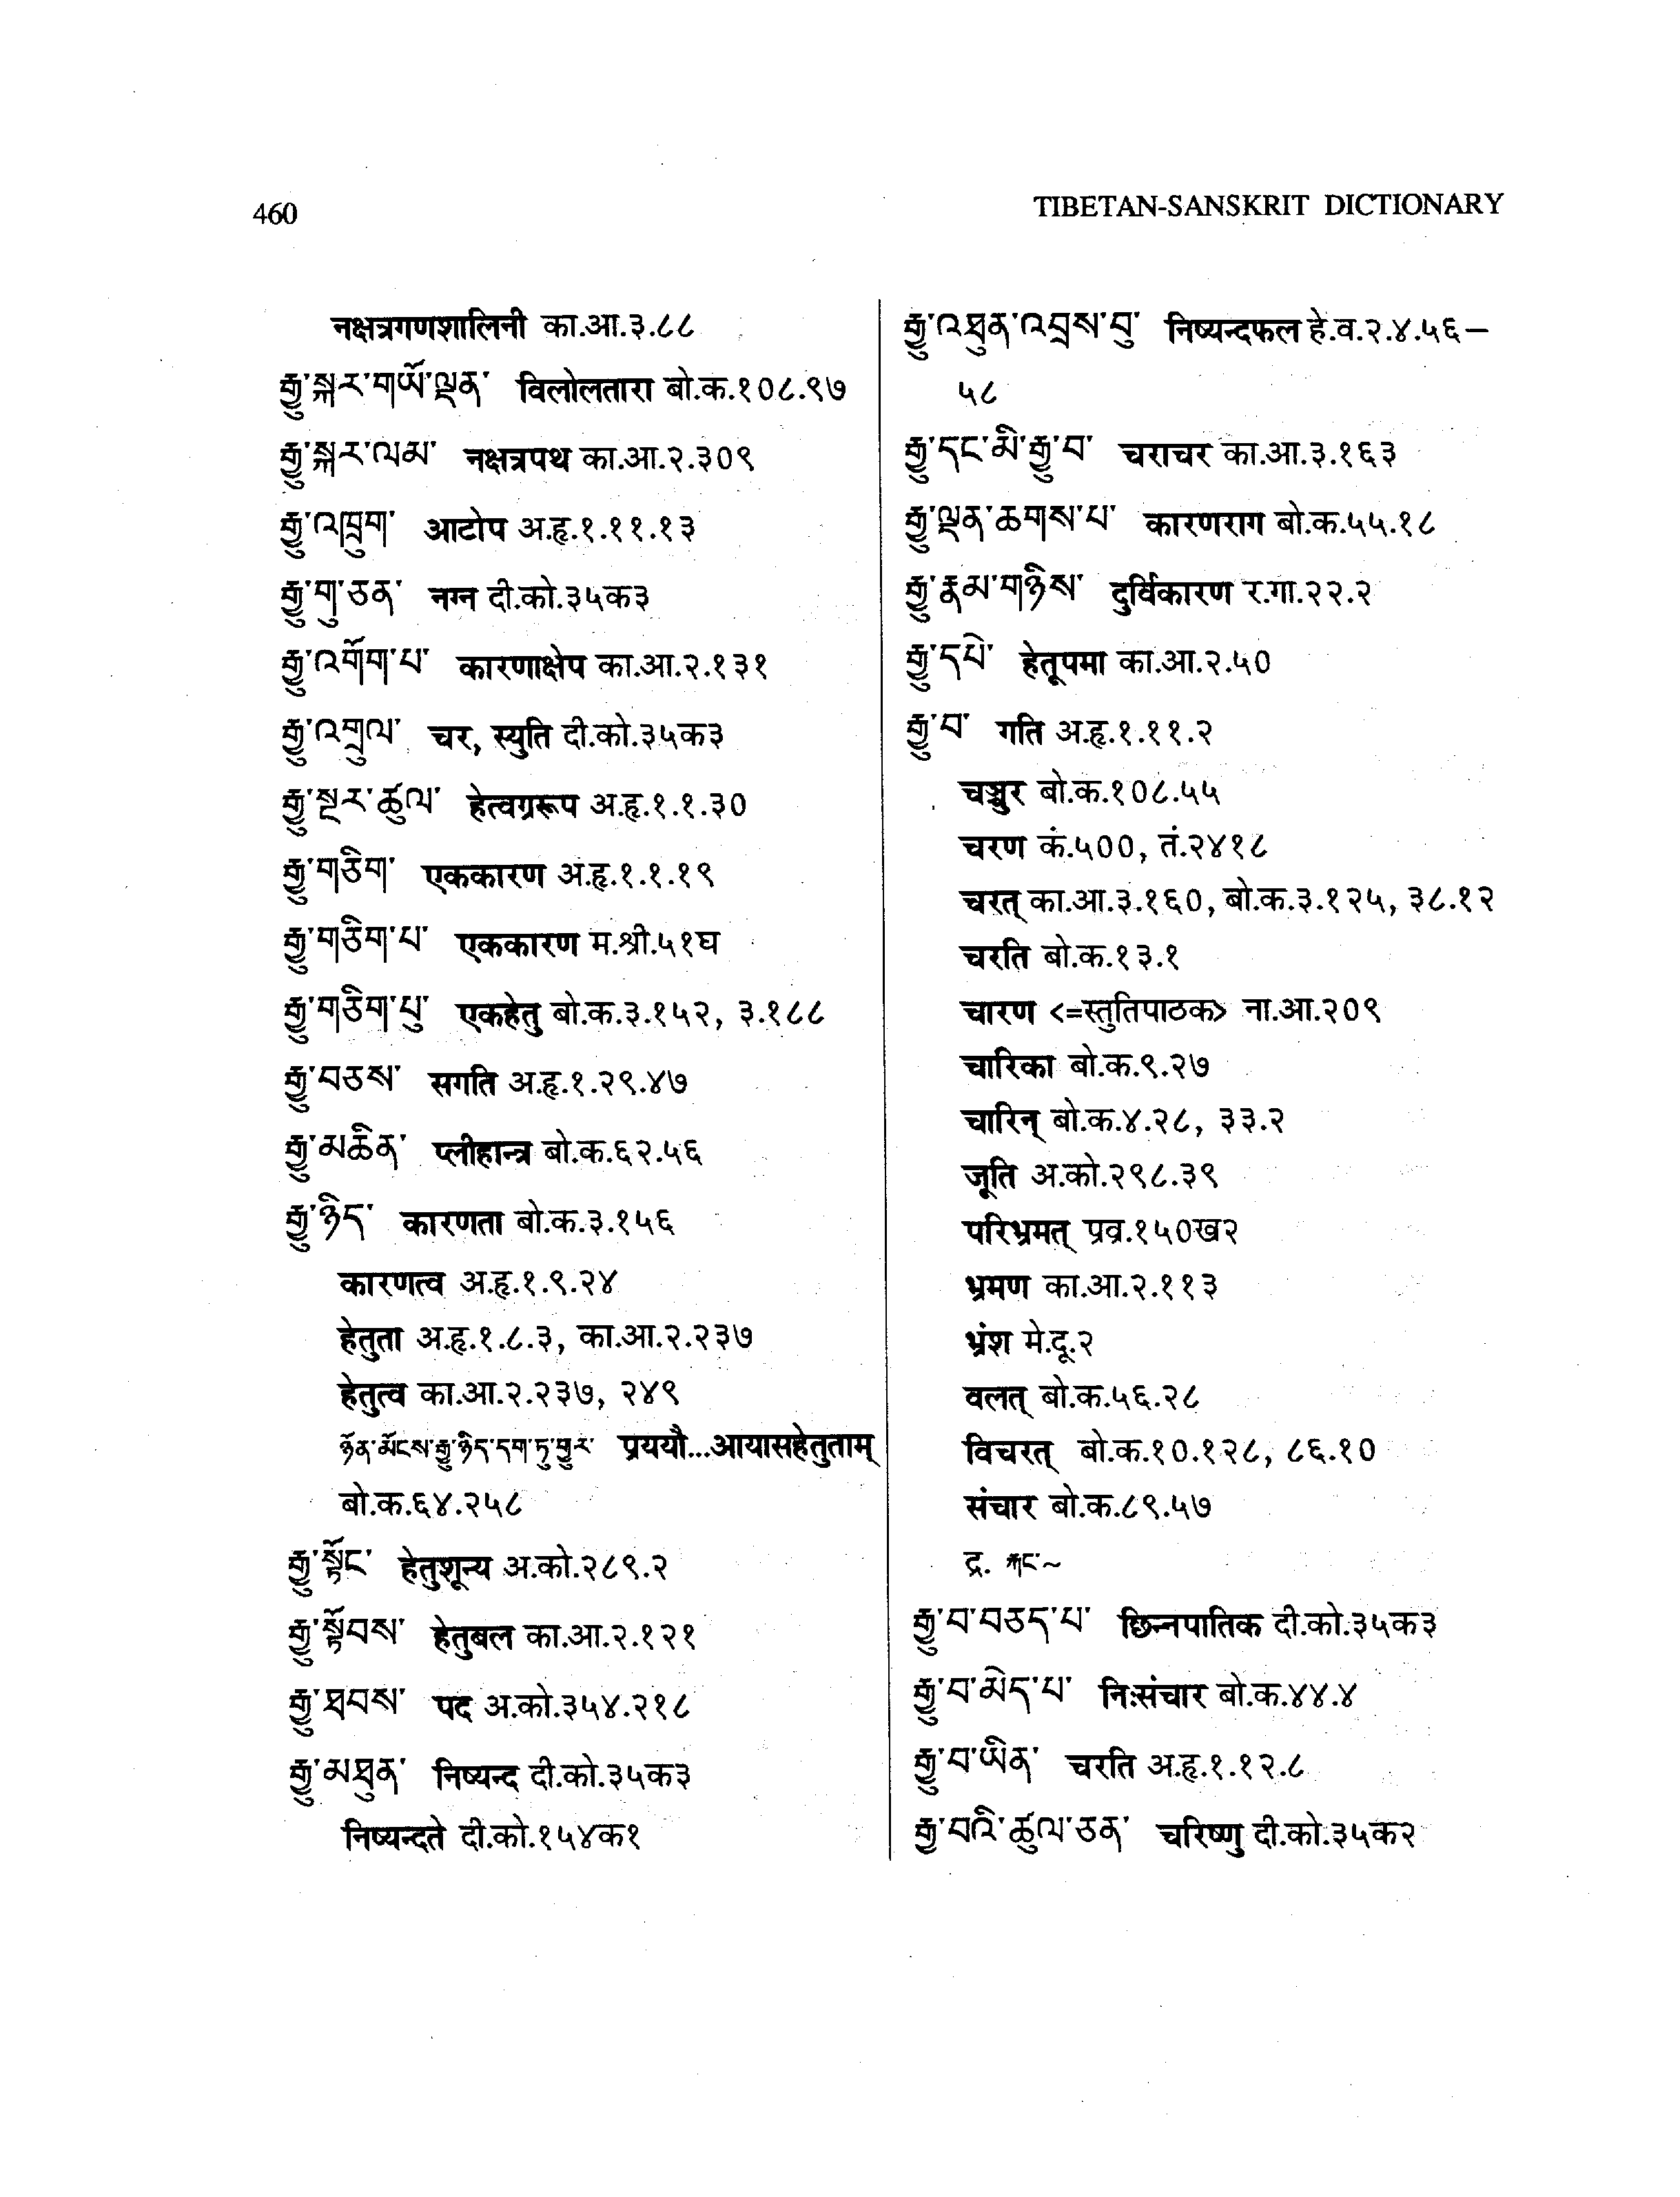 460
TIBETAN-SANSKRIT DICTIONARY
नक्षत्रगणशालिनी का.आ.३.८८
རྒྱུ་སྐར་གཡོ་ལྡན་ विलोलतारा बो.क.१०८.९७
རྒྱུ་སྐར་ལམ་ नक्षत्रपथ का.आ.२.३०९
རྒྱུ་འཁྲུག་ आटोप अ.हृ.१.११.१३
རྒྱུ་གུ་ཅན་ नग्न दी.को.३५क३
རྒྱུ་འགོག་པ་ कारणाक्षेप का.आ.२.१३१
རྒྱུ་འགྲུལ་ चर, स्युति दी.को.३५क३
རྒྱུ་སྔར་ཚུལ་ हेत्वग्ररूप अ.हृ.१.१.३०
རྒྱུ་གཅིག་ एककारण अ.हृ.१.१.१९
རྒྱུ་གཅིག་པ་ एककारण म.श्री.५१घ
རྒྱུ་གཅིག་པུ་ एकहेतु बो.क.३.१५२, ३.१८८
རྒྱུ་བཅས་ सगति अ.हृ.१.२९.४७
རྒྱུ་མཆིན་ प्लीहान्त्र बो.क.६२.५६
རྒྱུ་ཉིད་ कारणता बो.क.३.१५६
कारणत्व अ.हृ.१.९.२४
हेतुता अ.हृ.१.८.३, का.आ.२.२३७
हेतुत्व का.आ.२.२३७, २४९
ཉོན་མོངས་རྒྱུ་ཉིད་དག་ཏུ་གྱུར་ प्रययौ...आयासहेतुताम्
बो.क.६४.२५८
རྒྱུ་སྟོང་ हेतुशून्य अ.को.२८९.२
རྒྱུ་སྟོབས་ हेतुबल का.आ.२.१२१
རྒྱུ་ཐབས་ पद अ.को.३५४.२१८
རྒྱུ་མཐུན་ निष्यन्द दी.को.३५क३
निष्यन्दते दी.को.१५४क१
རྒྱུ་འཐུན་འབྲས་བུ་ निष्यन्दफल हे.व.२.४.५६–
५८
རྒྱུ་དང་མི་རྒྱུ་བ་ चराचर का.आ.३.१६३
རྒྱུ་ལྡན་ཆགས་པ་ कारणराग बो.क.५५.१८
རྒྱུ་རྣམ་གཉིས་ दुर्विकारण र.गा.२२.२
རྒྱུ་དཔེ་ हेतूपमा का.आ.२.५०
རྒྱུ་བ་ गति अ.हृ.१.११.२
चञ्चुर बो.क.१०८.५५
चरण कं.५००, तं.२४१८
चरत् का.आ.३.१६०, बो.क.३.१२५, ३८.१२
चरति बो.क.१३.१
चारण <=स्तुतिपाठक> ना.आ.२०९
चारिका बो.क.९.२७
चारिन् बो.क.४.२८, ३३.२
जूति अ.को.२९८.३९
परिभ्रमत् प्रव्र.१५०ख२
भ्रमण का.आ.२.११३
भ्रंश मे.दू.२
वलत् बो.क.५६.२८
विचरत् बो.क.१०.१२८, ८६.१०
संचार बो.क.८९.५७
द्र. རྐང་~
རྒྱུ་བ་བཅད་པ་ छिन्नपातिक दी.को.३५क३
རྒྱུ་བ་མེད་པ་ निःसंचार बो.क.४४.४
རྒྱུ་བ་ཡིན་ चरति अ.हृ.१.१२.८
རྒྱུ་བའི་ཚུལ་ཅན་ चरिष्णु दी.को.३५क२